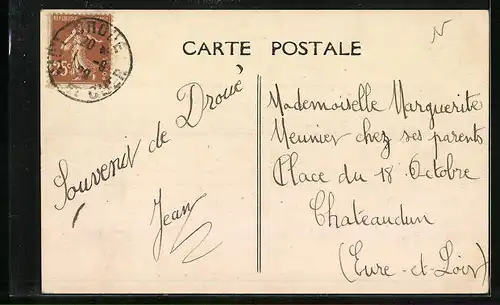 CARTE POSTALE
N
DROUÉ
25c
Souvenir de Droué
Jean
Mademoiselle Marguerite
Meunier chez ses parents
Place du 18 Octobre
Chateaudun
(Eure-et-Loir)